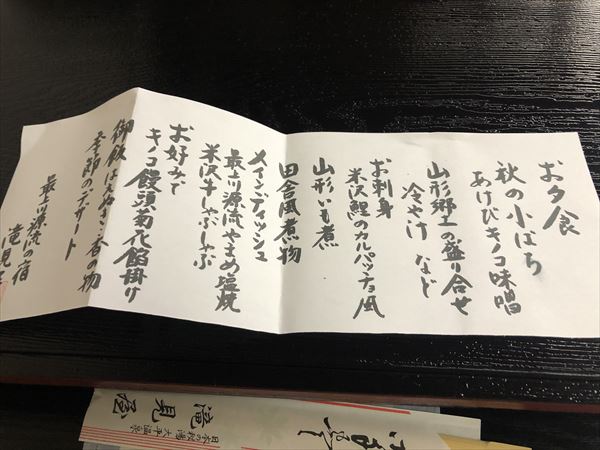 お夕食
秋の小ばち
あけびキノコ味噌
山形郷土の盛り合せ
冷やけ など
お刺身
米沢鯉のカルパッチョ風
山形いも煮
田舎風煮物
メインディッシュ
最上川源流やまめ塩焼
米沢牛しゃぶしゃぶ
お好みで
キノコ饅頭菊花餡掛け
御飯 はえぬき 香の物
季節のデザート
最上川源流の宿
滝見屋
滝見屋
日本の秘湯 大平温泉